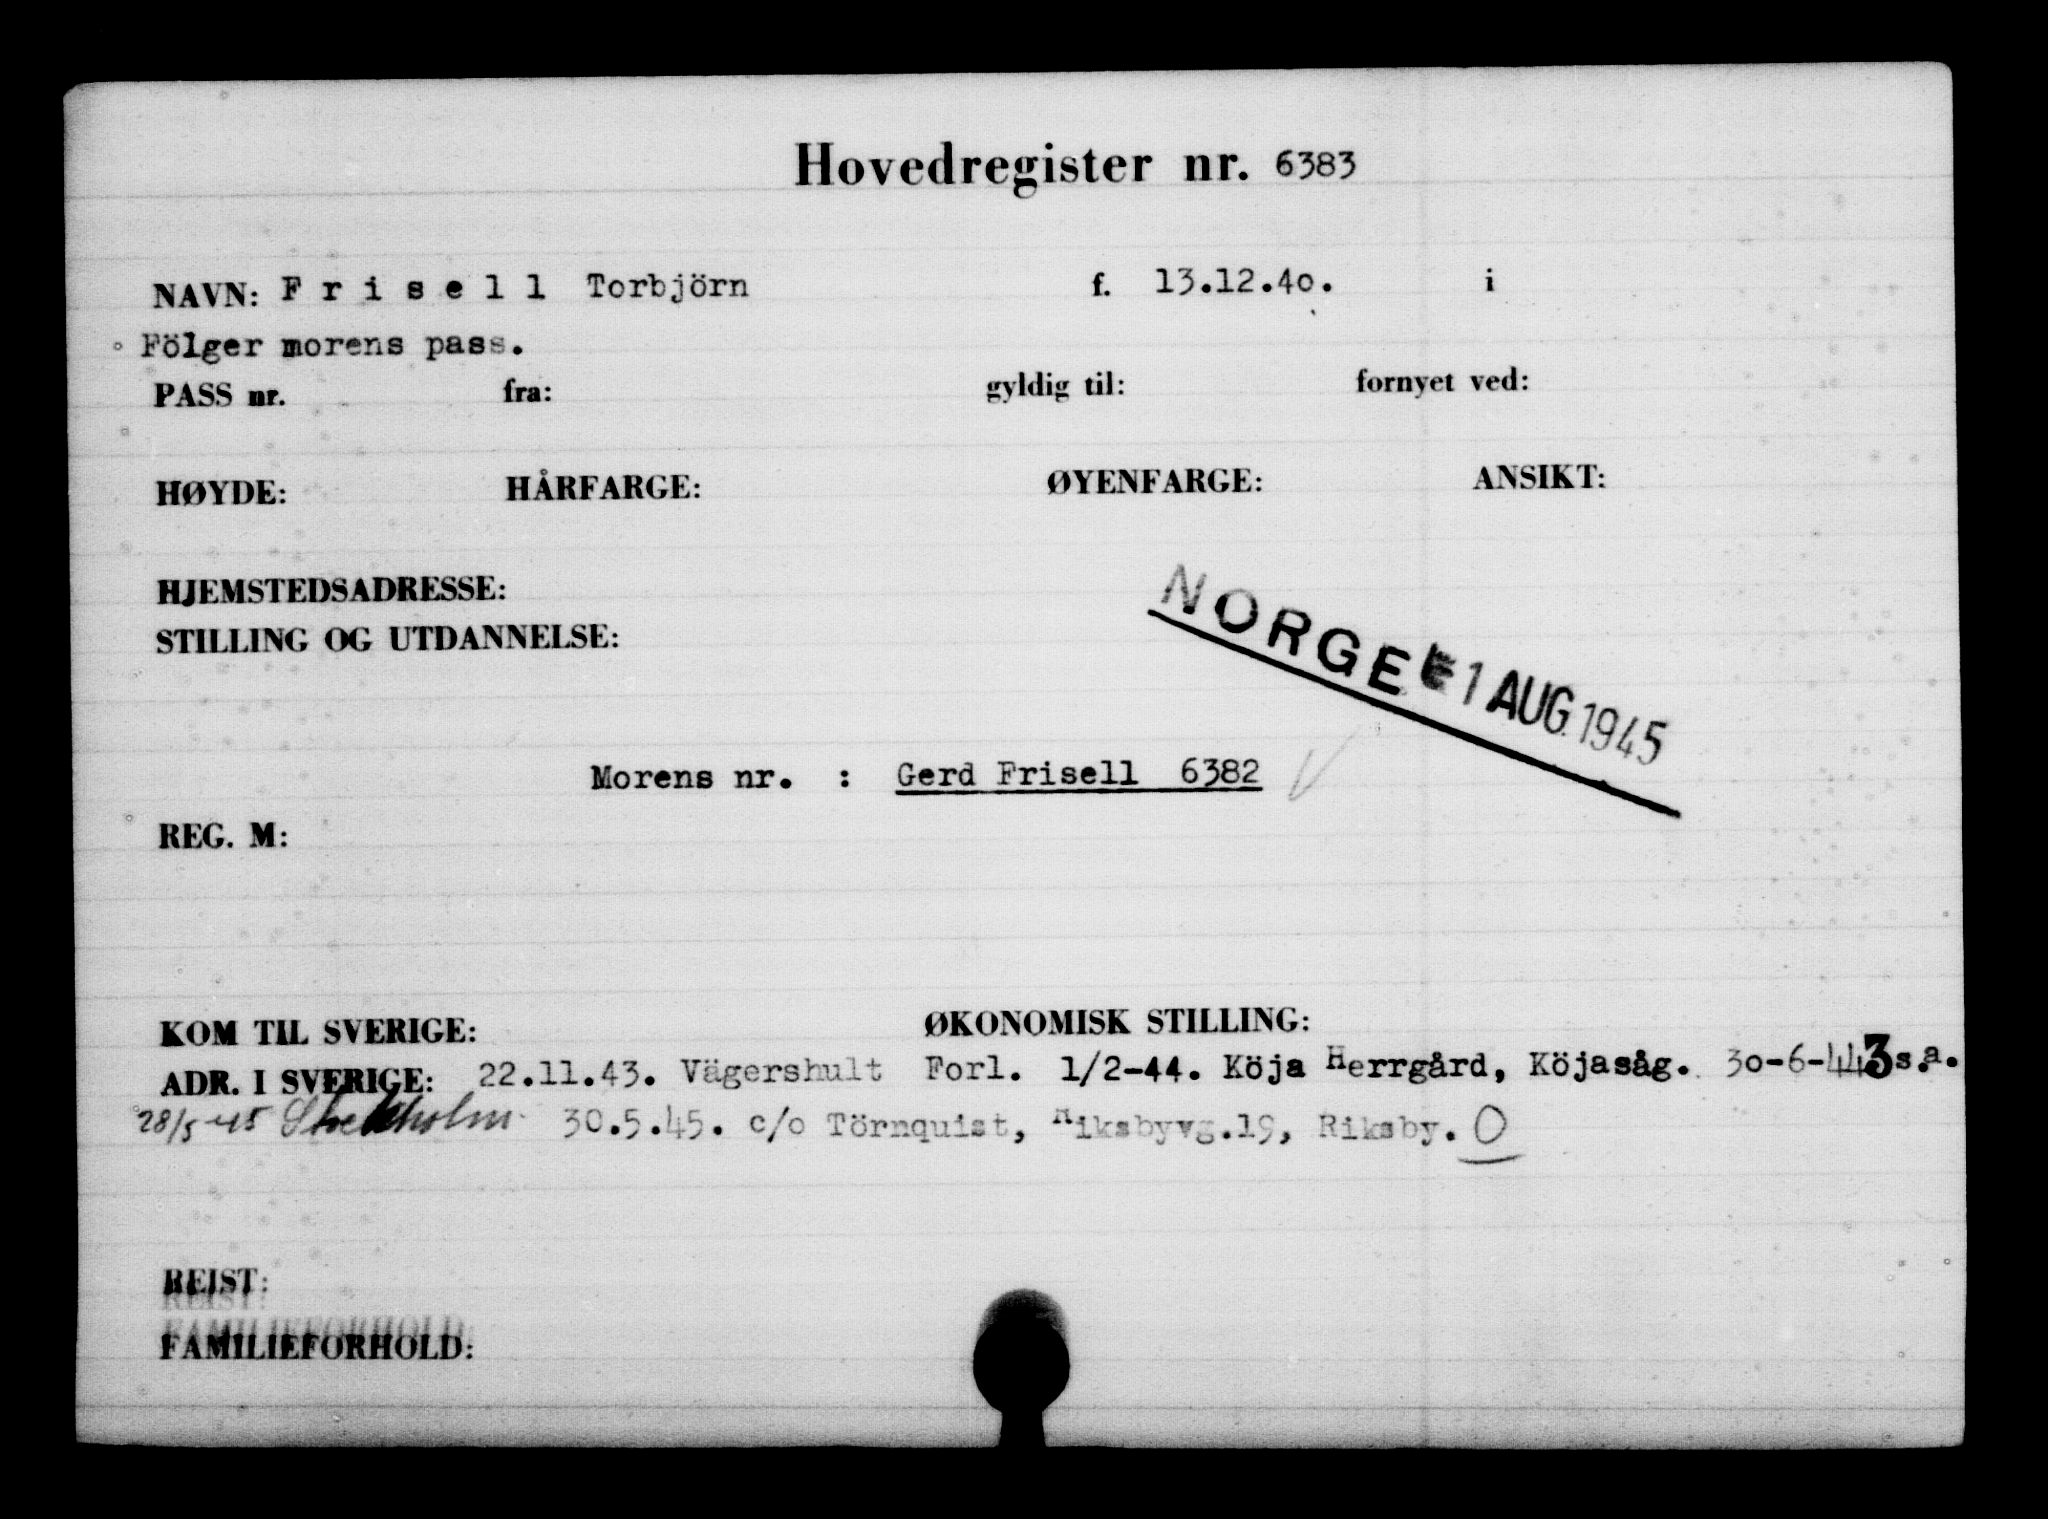 Hovedregister nr. 6383
NAVN: F r i s e l l Torbjörn f. 13.12.40. i
Fölger morens pass.
PASS nr. fra: gyldig til: fornyet ved:
HØYDE: HÅRFARGE: ØYENFARGE: ANSIKT:
HJEMSTEDSADRESSE:
STILLING OG UTDANNELSE:
NORGE 1 AUG. 1945
Morens nr. : Gerd Frisell 6382
REG. M:
KOM TIL SVERIGE: ØKONOMISK STILLING:
ADR. I SVERIGE: 22.11.43. Vägershult Forl. 1/2-44. Köja Herrgård, Köjasåg. 30-6-44 3 s.a.
28/5-45 Stockholm 30.5.45. c/o Törnquist, Riksbyvg.19, Riksby.
REIST:
FAMILIEFORHOLD: